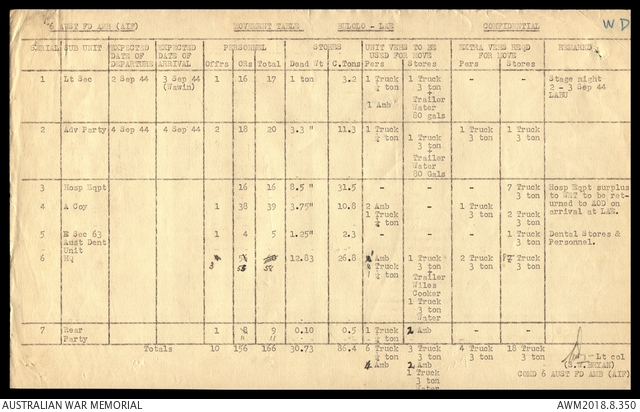 6 AUST FD AMB (AIF) MOVEMENT TABLE BULOLO - LAE CONFIDENTIAL WD
SERIAL SUB UNIT EXPECTED DATE OF DEPARTURE EXPECTED DATE OF ARRIVAL PERSONNEL STORES UNIT VEHS TO BE USED FOR MOVE EXTRA VEHS REQD FOR MOVE REMARKS
Offrs ORs Total Dead Wt C.Tons Pers Stores Pers Stores
1 Lt Sec 2 Sep 44 3 Sep 44 1 16 17 1 ton 3.2 1 Truck 1 Truck - - Stage night
(Wawin) ton 3 ton 2 - 3 Sep 44
+ LABU
1 Amb Trailer
Water
80 gals
2 Adv Party 4 Sep 44 4 Sep 44 2 18 20 3.3 " 11.3 - 1 Truck 1 Truck 1 Truck
3 ton 3 ton 3 ton
+
Trailer
Water
80 Gals
3 Hosp Eqpt 16 16 8.5 " 31.5 - - - 7 Truck Hosp Eqpt surplus
3 ton to WET to be ret-
4 A Coy 1 38 39 3.75" 10.8 2 Amb - 1 Truck urned to AOD on
1 Truck 3 ton 2 Truck arrival at LAE.
ton 3 ton
5 E Sec 63 1 4 5 1.25" 2.3 - - - 1 Truck Dental Stores &
Aust Dent 3 ton Personnel.
Unit
6 HQ 12.83 26.8 Amb 1 Truck 2 Truck Truck
3 58 Truck 3 ton 3 ton 3 ton
ton +
Trailer
Wiles
Cooker
1 Truck
3 ton
Water
7 Rear 1 8 9 0.10 0.5 1 Truck 2 Amb - -
Party ton
Totals 10 156 166 30.73 86.4 6 Truck 3 Truck 4 Truck 18 Truck
ton 3 ton 3 ton 3 ton - Lt col
4 Amb 2 Amb (S.W.BRYAN)
1 Truck COMD 6 AUST FD AMB (AIF)
3 ton
Water
AUSTRALIAN WAR MEMORIAL AWM2018.8.350